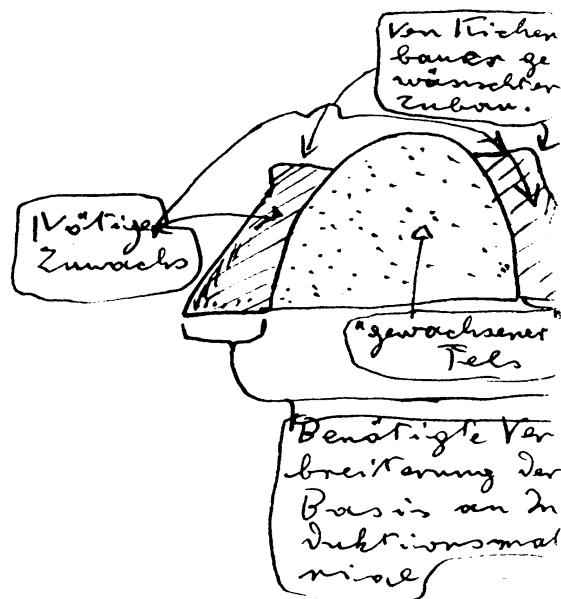 Von Kirchen
bauer ge
wünschter
Zubau.
Nötiger
Zuwachs
"gewachsener
Fels
Benötigte Ver
breiterung der
Basis an In
duktionsmat